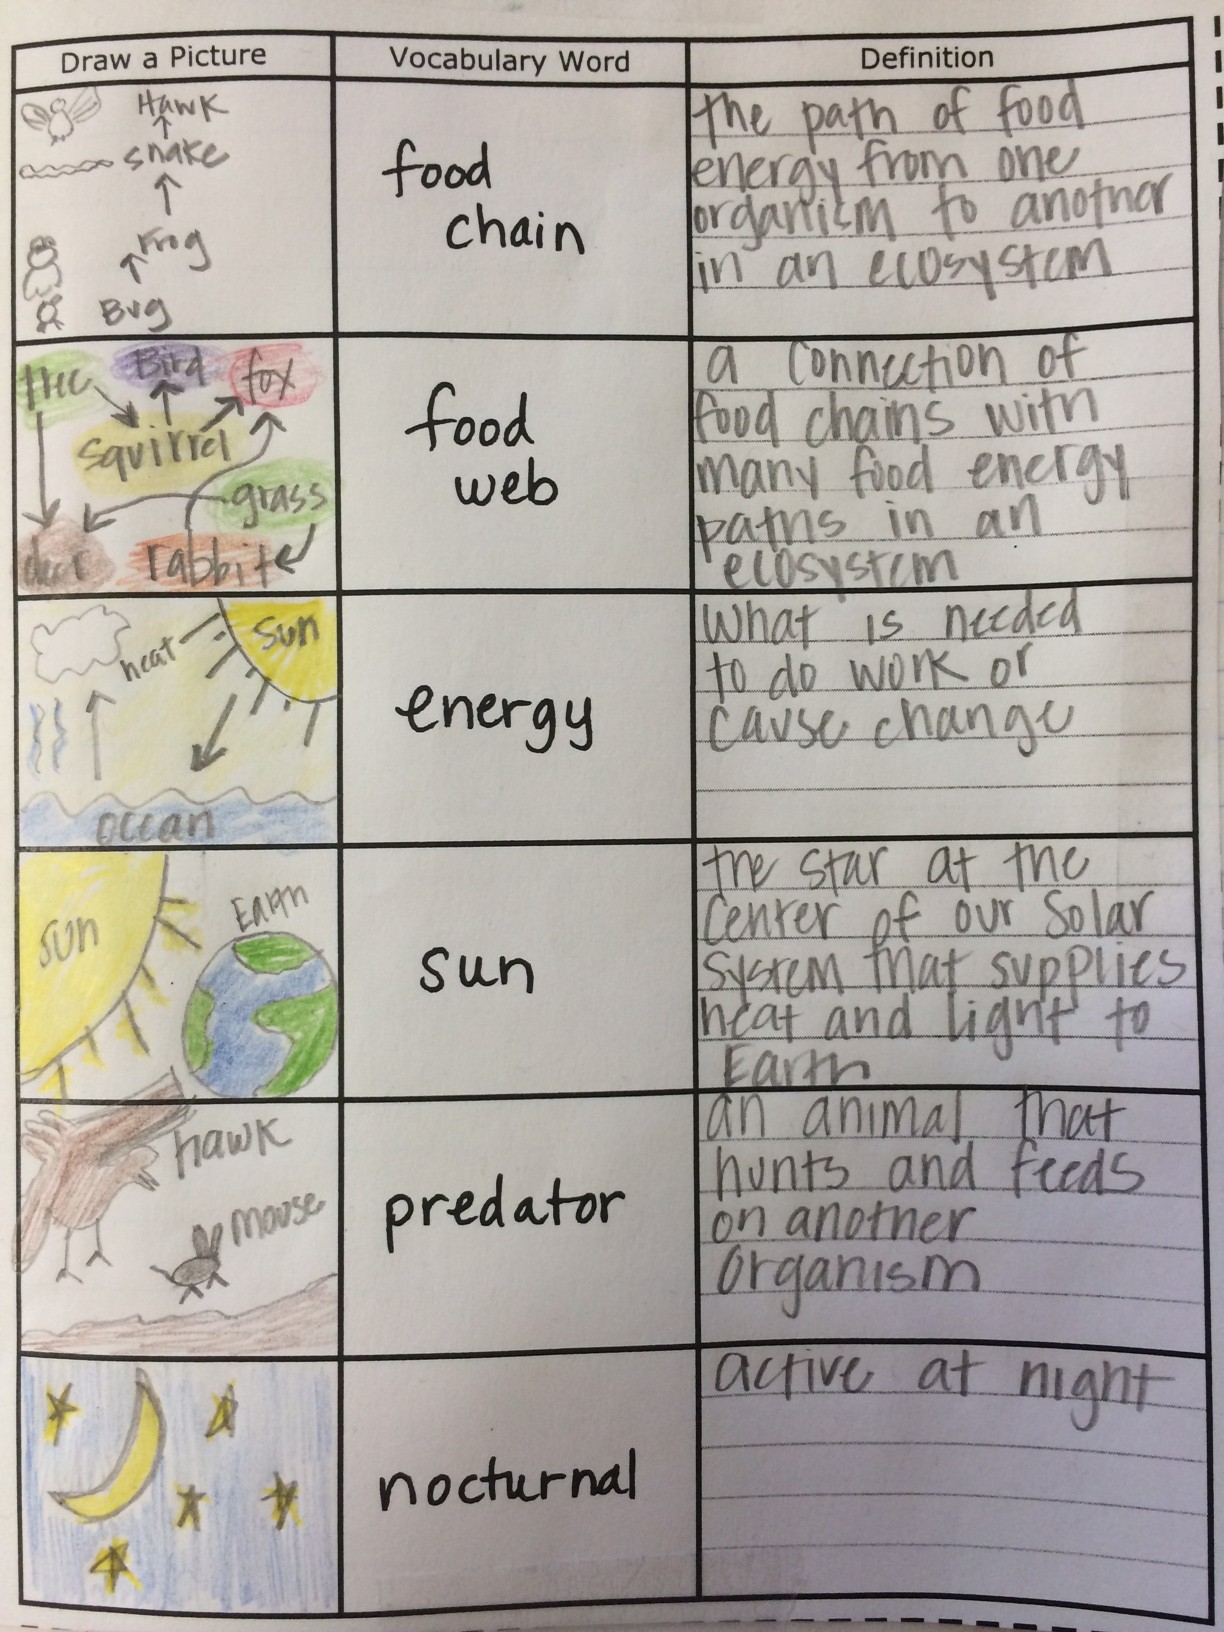 Draw a Picture
Vocabulary Word
Definition
Hawk
snake
Frog
Bug
food
chain
the path of food
energy from one
organism to another
in an ecosystem
tree
Bird
fox
squirrel
grass
deer
rabbit
food
web
a connection of
food chains with
many food energy
paths in an
ecosystem
heat
Sun
ocean
energy
what is needed
to do work or
cause change
sun
Earth
sun
the star at the
center of our Solar
System that supplies
heat and light to
Earth
hawk
mouse
predator
an animal that
hunts and feeds
on another
organism
nocturnal
active at night